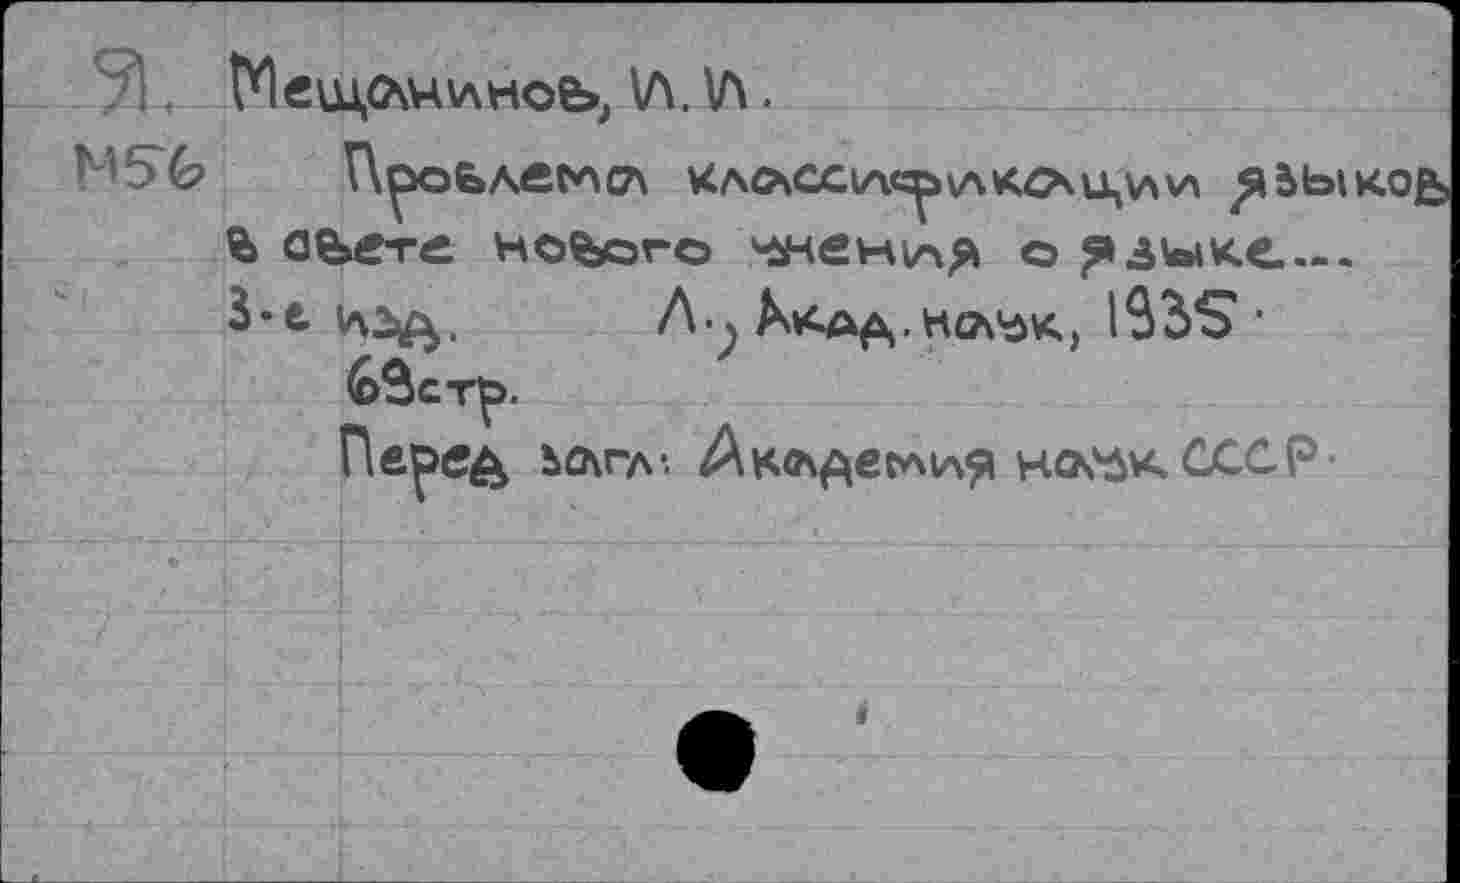 Я. Мещанинов, И. И.
М56 Проблема классификации языков
в свете нового учения о языке....
3-е изд. Л., Акад. наук, 1935.
69 стр.
Перед загл: Академия наук СССР.